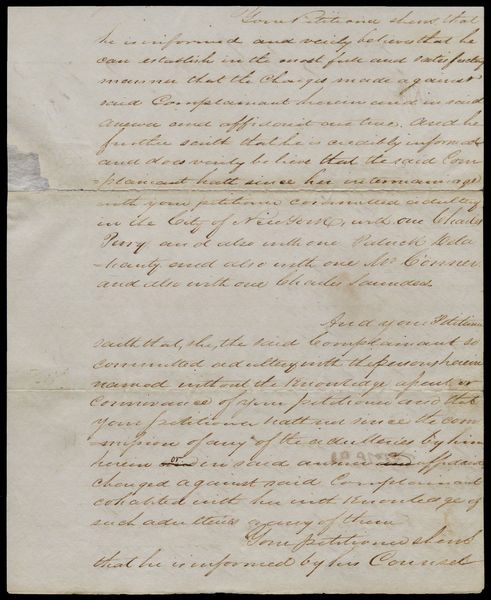 Your Petitioner shews that
he is informed and verily believes that he
can establish in the most full and satisfactory
manner that the Charges made against
said Complainant herein and in said
answer and affidavit are true. And he
further saith that he is credibly informed
and does verily believe that the said Com
-plainant hath since her intermarriage
with your petitioner committed adultery
in the City of New York, with one Charles
Perry and also with one Patrick Dela
-hanty and also with one Mr Conner
and also with one Charles Saunders.
And your Petitioner
saith that, she, the said Complainant so
committed adultery with the persons herein
named without the Knowledge or
connivance of your petitioner and that
your petitioner hath not since the com
-mission of any of the adulteries by him
herein or in said answer affidavit
charged against said Complainant
cohabited with her with Knowledge of
such adulteries or any of them
Your petitioner shews
that he is informed by his Counsel